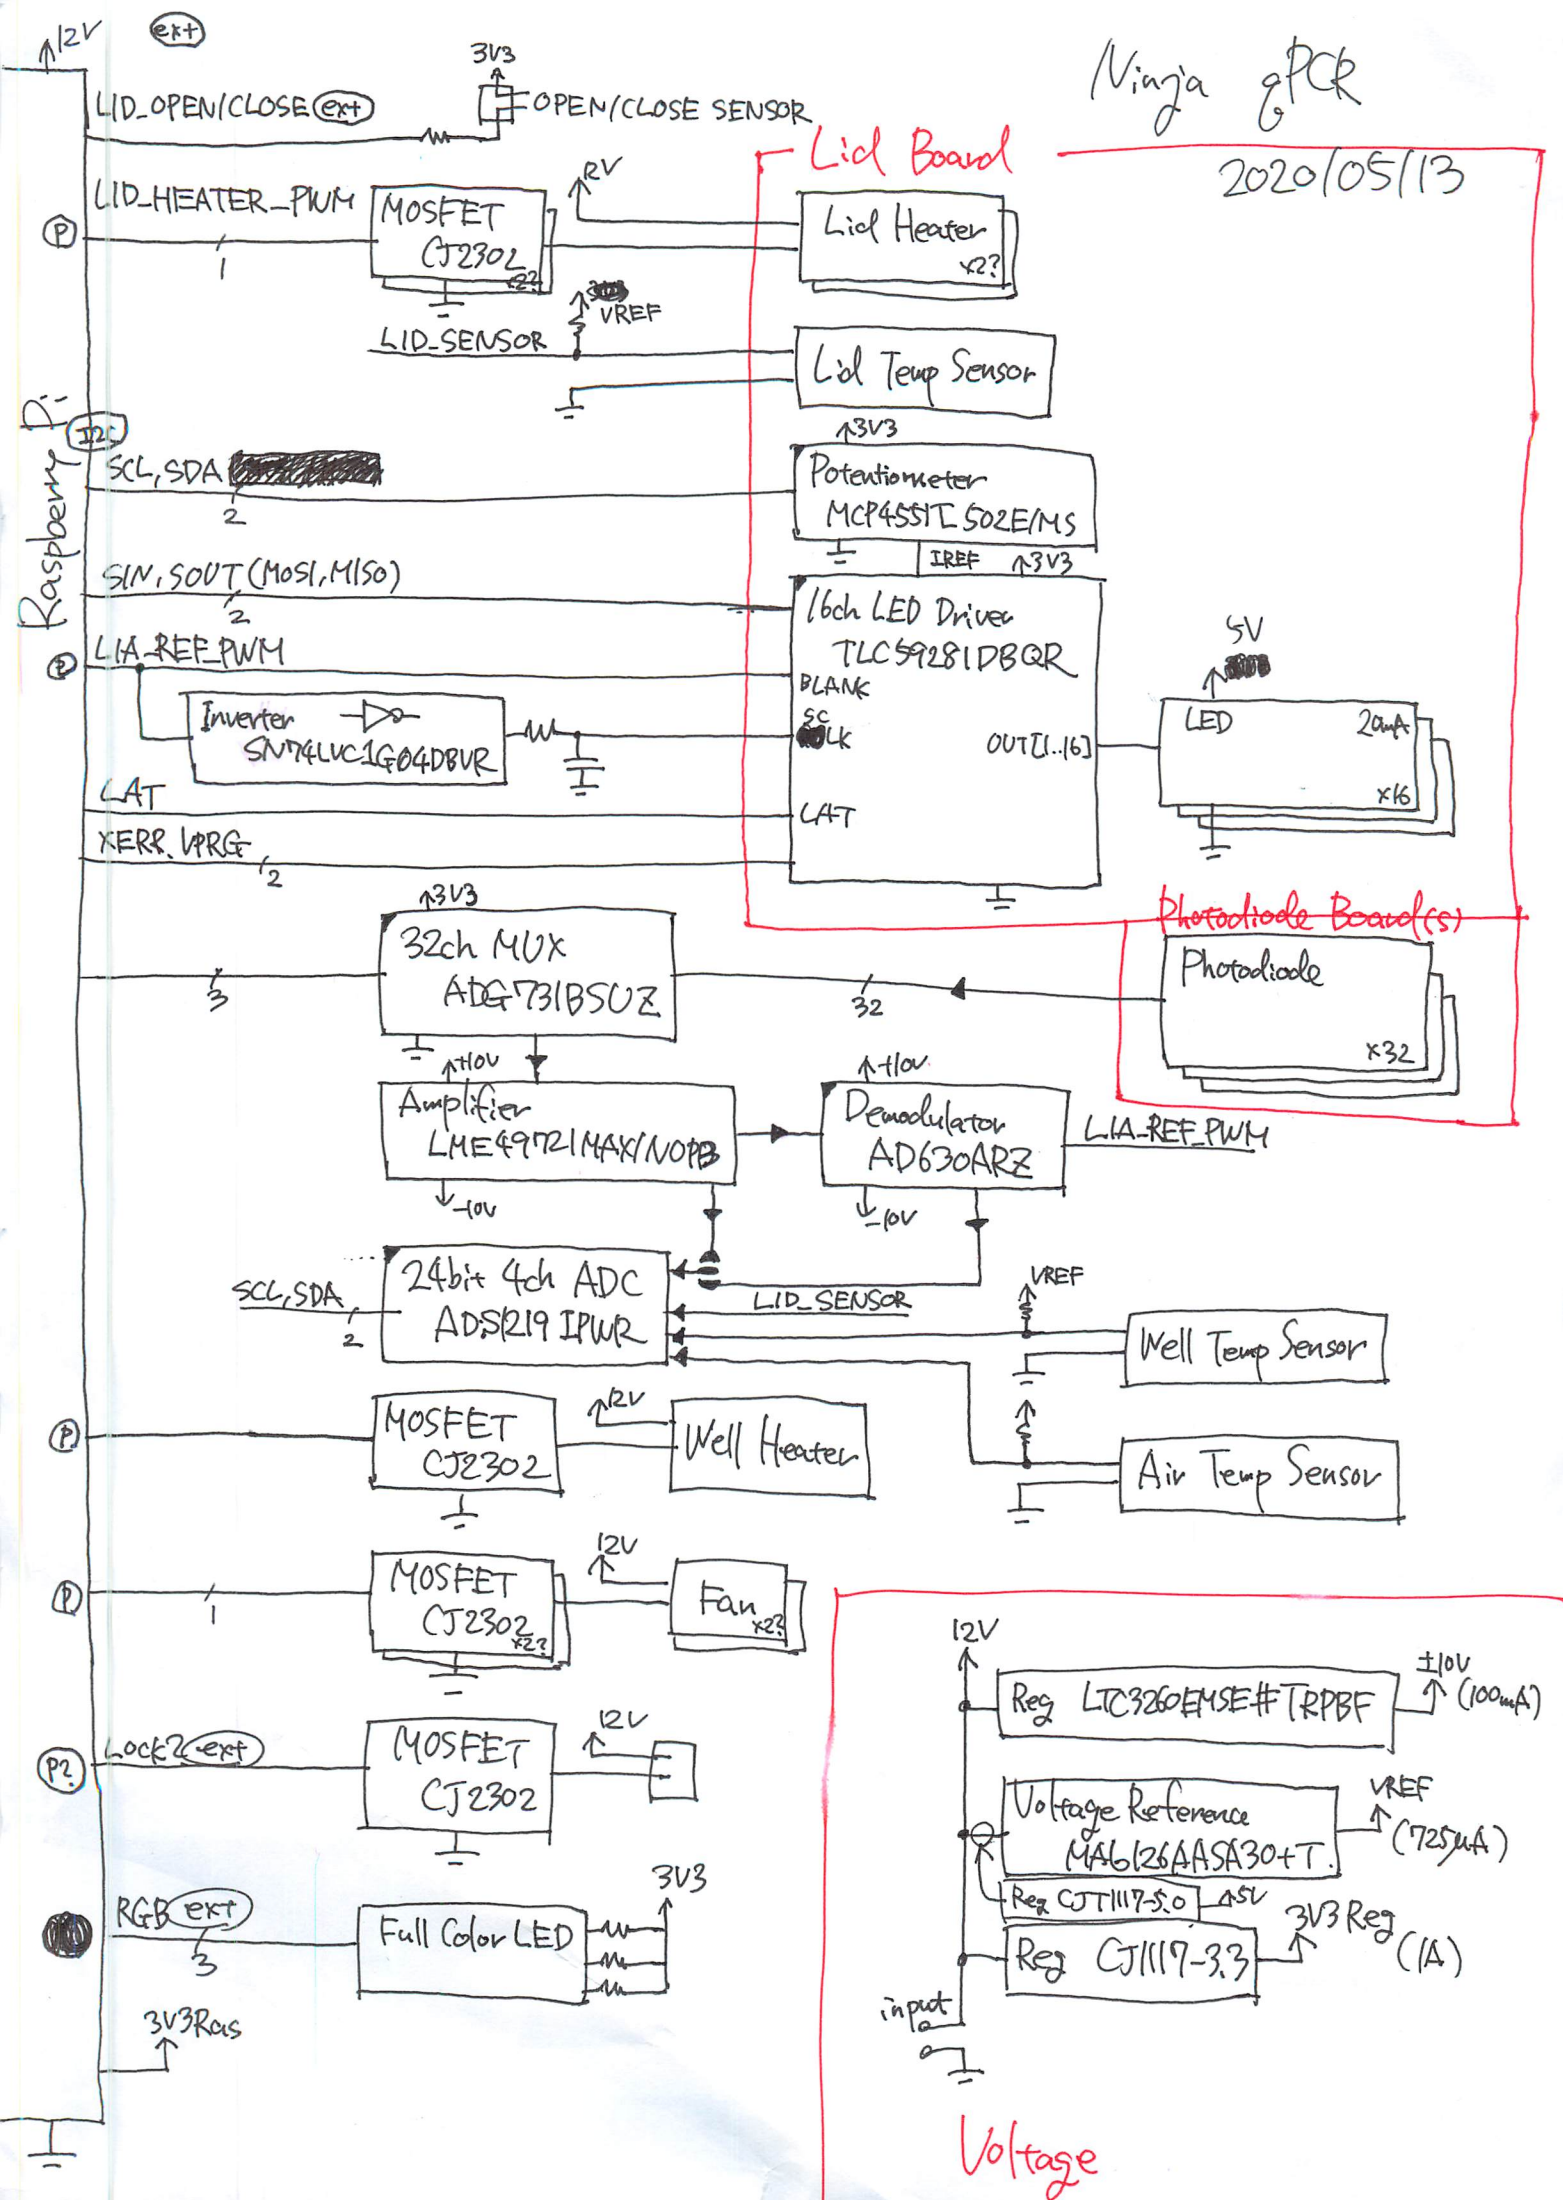 12V
ext
3V3
Ninja qPCR
LID_OPEN/CLOSE ext
OPEN/CLOSE SENSOR
Lid Board
2020/05/13
LID_HEATER_PWM
P
1
MOSFET
CJ2302
x2?
12V
Lid Heater
x2?
VREF
LID_SENSOR
Lid Temp Sensor
Raspberry Pi
I2C
SCL, SDA
2
3V3
Potentiometer
MCP4551T 502E/MS
IREF
3V3
SIN, SOUT (MOSI, MISO)
2
16ch LED Driver
TLC59281DBQR
LIA_REF_PWM
P
BLANK
Inverter
SN74LVC1G04DBVR
SC
LK
OUT[1..16]
5V
LED
20mA
x16
LAT
LAT
XERR, VPRG
2
3V3
32ch MUX
ADG731BSUZ
3
32
Photodiode Board(s)
Photodiode
x32
+10V
Amplifier
LME49721MAX/NOPB
-10V
+10V
Demodulator
AD630ARZ
-10V
LIA_REF_PWM
24bit 4ch ADC
ADS1219 IPWR
SCL, SDA
2
LID_SENSOR
VREF
Well Temp Sensor
P
MOSFET
CJ2302
12V
Well Heater
Air Temp Sensor
P
1
MOSFET
CJ2302
x2?
12V
Fan
x2?
P?
Lock? ext
MOSFET
CJ2302
12V
RGB ext
3
Full Color LED
3V3
3V3Ras
12V
Reg LTC3260EMSE#TRPBF
±10V
(100mA)
Voltage Reference
MA6126AASA30+T
VREF
(725μA)
Reg CJT1117-5.0
5V
Reg CJ1117-3.3
3V3 Reg
(1A)
input
Voltage